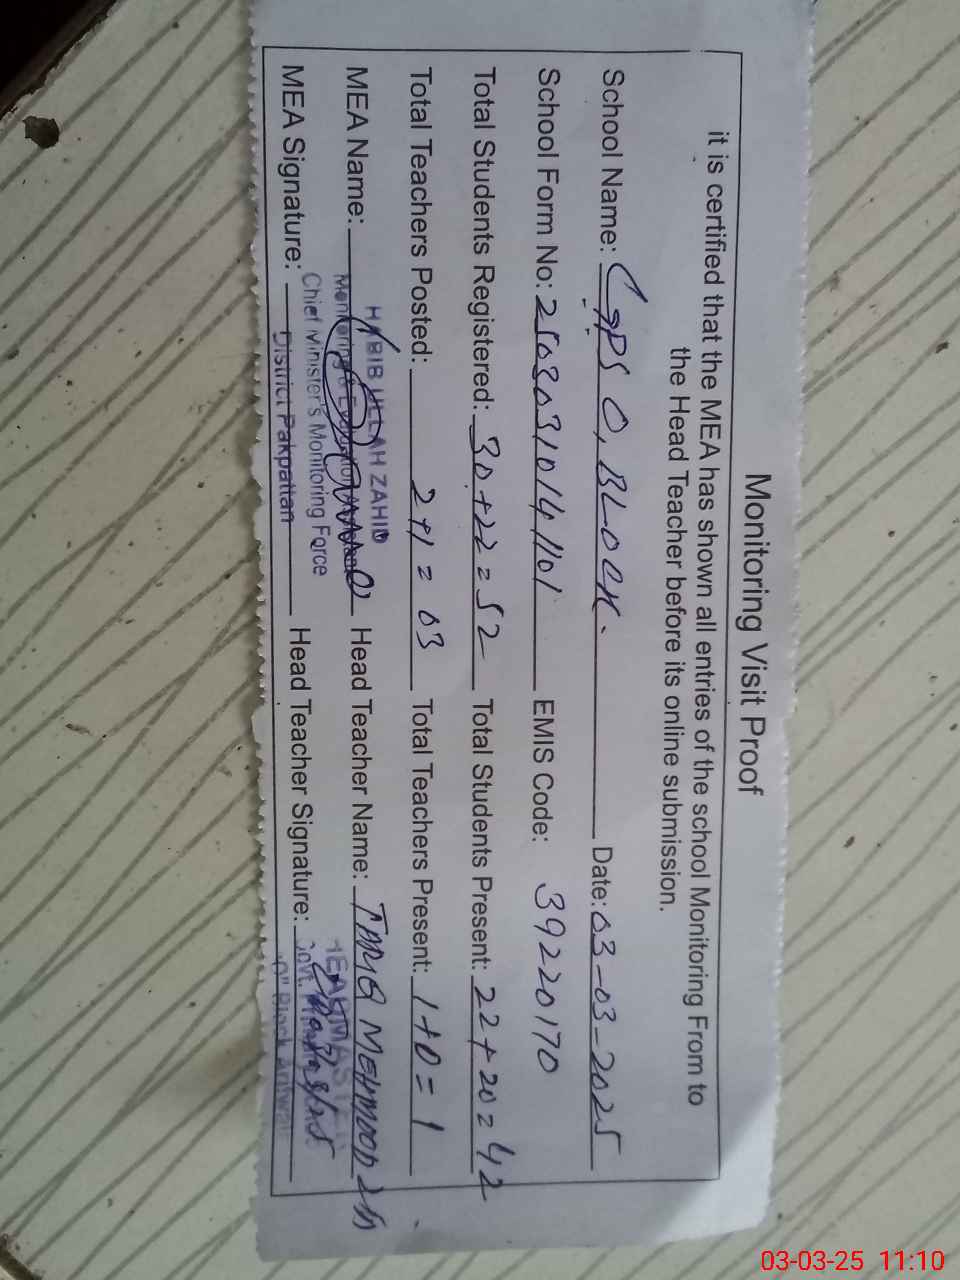 Monitoring Visit Proof
it is certified that the MEA has shown all entries of the school Monitoring From to
the Head Teacher before its online submission.
School Name: GPS O, BLOCK. Date: 03-03-2025
School Form No: EMIS Code: 39220170
Total Students Registered: 30+22=52 Total Students Present: 22+20=42
Total Teachers Posted: 2+1=03 Total Teachers Present: 1+0=1
HABIB ULLAH ZAHID
MEA Name: Head Teacher Name: TARIQ MEHMOOD
Monitoring &
Chief Minister's Monitoring Force
MEA Signature: District Pakpattan Head Teacher Signature:
HEADMASTER
Govt.
"O" Block
03-03-25 11:10